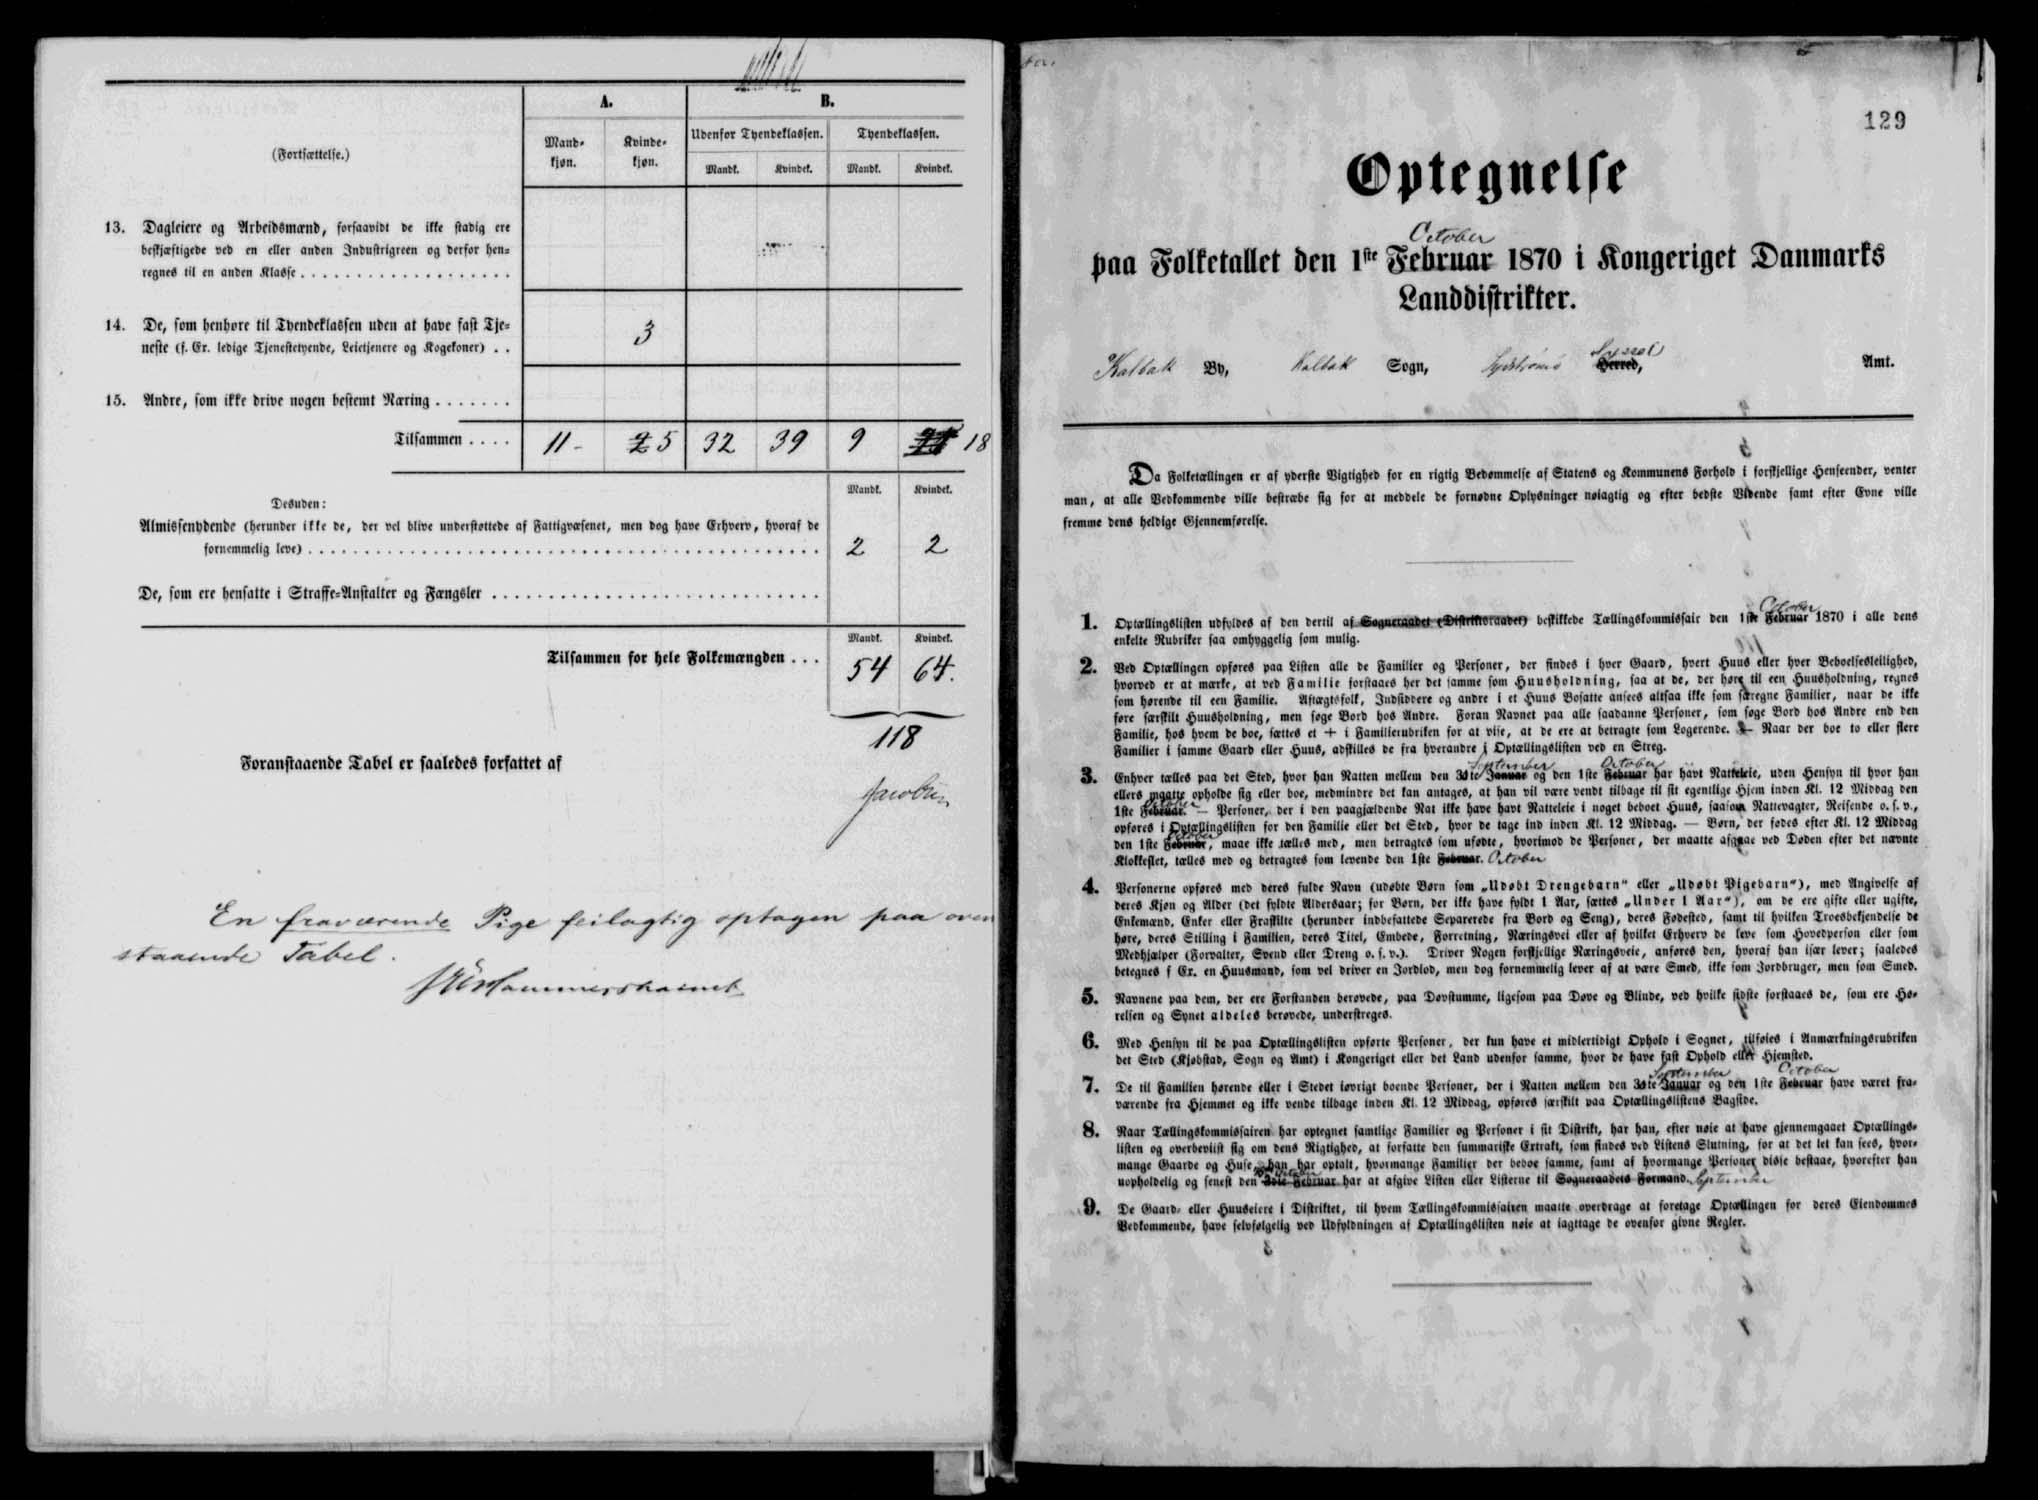 (Fortsættelse.)
A.
B.
Mandkjøn.
Kvindekjøn.
Udenfor Tyendeklassen.
Tyendeklassen.
Mandk.
Kvindek.
Mandk.
Kvindek.
13. Dagleiere og Arbeidsmænd, forsaavidt de ikke stadig ere
beskjæftigede ved en eller anden Industrigreen og derfor hen=
regnes til en anden Klasse
14. De, som henhøre til Tyendeklassen uden at have fast Tje=
neste (f. Ex. ledige Tjenestetyende, Leietjenere og Kogekoner) . . 3
15. Andre, som ikke drive nogen bestemt Næring
Tilsammen . . . . 11 - 5 32 39 9 18
Desuden:
Mandk. Kvindek.
Almissenydende (herunder ikke de, der vel blive understøttede af Fattigvæsenet, men dog have Erhverv, hvoraf de
fornemmelig leve) 2 2
De, som ere hensatte i Straffe=Anstalter og Fængsler
Mandk. Kvindek.
Tilsammen for hele Folkemængden . . . 54 64.
118
Foranstaaende Tabel er saaledes forfattet af
Jacobsen
En fraværende Pige feilagtig optagen paa oven
staaende Tabel.
Hammershaimb
129
Optegnelse
October
paa Folketallet den 1ste Februar 1870 i Kongeriget Danmarks
Landdistrikter.
Kalbak By, Kalbak Sogn, Syströmö Syssel Herred, Amt.
Da Folketællingen er af yderste Vigtighed for en rigtig Bedømmelse af Statens og Kommunens Forhold i forskjellige Henseender, venter
man, at alle Vedkommende ville bestræbe sig for at meddele de fornødne Oplysninger nøiagtig og efter bedste Vidende samt efter Evne ville
fremme dens heldige Gjennemførelse.
October
1. Optællingslisten udfyldes af den dertil af Sogneraadet (Distriktsraadet) beskikkede Tællingskommissair den 1ste Februar 1870 i alle dens
enkelte Rubriker saa omhyggelig som mulig.
2. Ved Optællingen opføres paa Listen alle de Familier og Personer, der findes i hver Gaard, hvert Huus eller hver Beboelsesleilighed,
hvorved er at mærke, at ved Familie forstaaes her det samme som Huusholdning, saa at de, der høre til een Huusholdning, regnes
som hørende til een Familie. Aftægtsfolk, Indsiddere og andre i et Huus Bosatte ansees altsaa ikke som særegne Familier, naar de ikke
føre særskilt Huusholdning, men søge Bord hos Andre. Foran Navnet paa alle saadanne Personer, som søge Bord hos Andre end den
Familie, hos hvem de boe, sættes et + i Familierubriken for at vise, at de ere at betragte som Logerende. — Naar der boe to eller flere
Familier i samme Gaard eller Huus, adskilles de fra hverandre i Optællingslisten ved en Streg.
September October
3. Enhver tælles paa det Sted, hvor han Natten mellem den 31te Januar og den 1ste Februar har havt Natteleie, uden Hensyn til hvor han
ellers maatte opholde sig eller boe, medmindre det kan antages, at han vil være vendt tilbage til sit egentlige Hjem inden Kl. 12 Middag den
October
1ste Februar. — Personer, der i den paagjældende Nat ikke have havt Natteleie i noget beboet Huus, saasom Nattevagter, Reisende o. s. v.,
opføres i Optællingslisten for den Familie eller det Sted, hvor de tage ind inden Kl. 12 Middag. — Børn, der fødes efter Kl. 12 Middag
October
den 1ste Februar, maae ikke tælles med, men betragtes som ufødte, hvorimod de Personer, der maatte afgaae ved Døden efter det nævnte
Klokkeslet, tælles med og betragtes som levende den 1ste Februar. October
4. Personerne opføres med deres fulde Navn (udøbte Børn som „Udøbt Drengebarn“ eller „Udøbt Pigebarn“), med Angivelse af
deres Kjøn og Alder (det fyldte Aldersaar; for Børn, der ikke have fyldt 1 Aar, sættes „Under 1 Aar“), om de ere gifte eller ugifte,
Enkemænd, Enker eller Fraskilte (herunder indbefattede Separerede fra Bord og Seng), deres Fødested, samt til hvilken Troesbekjendelse de
høre, deres Stilling i Familien, deres Titel, Embede, Forretning, Næringsvei eller af hvilket Erhverv de leve som Hovedperson eller som
Medhjælper (Forvalter, Svend eller Dreng o. s. v.). Driver Nogen forskjellige Næringsveie, anføres den, hvoraf han især lever; saaledes
betegnes f Ex. en Huusmand, som vel driver en Jordlod, men dog fornemmelig lever af at være Smed, ikke som Jordbruger, men som Smed.
5. Navnene paa dem, der ere Forstanden berøvede, paa Døvstumme, ligesom paa Døve og Blinde, ved hvilke sidste forstaaes de, som ere Hø=
relsen og Synet aldeles berøvede, understreges.
6. Med Hensyn til de paa Optællingslisten opførte Personer, der kun have et midlertidigt Ophold i Sognet, tilføies i Anmærkningsrubriken
det Sted (Kjøbstad, Sogn og Amt) i Kongeriget eller det Land udenfor samme, hvor de have fast Ophold eller Hjemsted.
September October
7. De til Familien hørende eller i Stedet iøvrigt boende Personer, der i Natten mellem den 31te Januar og den 1ste Februar have været fra=
værende fra Hjemmet og ikke vende tilbage inden Kl. 12 Middag, opføres særskilt paa Optællingslistens Bagside.
8. Naar Tællingskommissairen har optegnet samtlige Familier og Personer i sit Distrikt, har han, efter nøie at have gjennemgaaet Optællings=
listen og overbeviist sig om dens Rigtighed, at forfatte den summariske Extrakt, som findes ved Listens Slutning, for at det let kan sees, hvor=
mange Gaarde og Huse han har optalt, hvormange Familier der beboe samme, samt af hvormange Personer disse bestaae, hvorefter han
October
uopholdelig og senest den Februar har at afgive Listen eller Listerne til Sogneraadets Formand.
9. De Gaard= eller Huuseiere i Distriktet, til hvem Tællingskommissairen maatte overdrage at foretage Optællingen for deres Eiendommes
Vedkommende, have selvfølgelig ved Udfyldningen af Optællingslisten nøie at iagttage de ovenfor givne Regler.